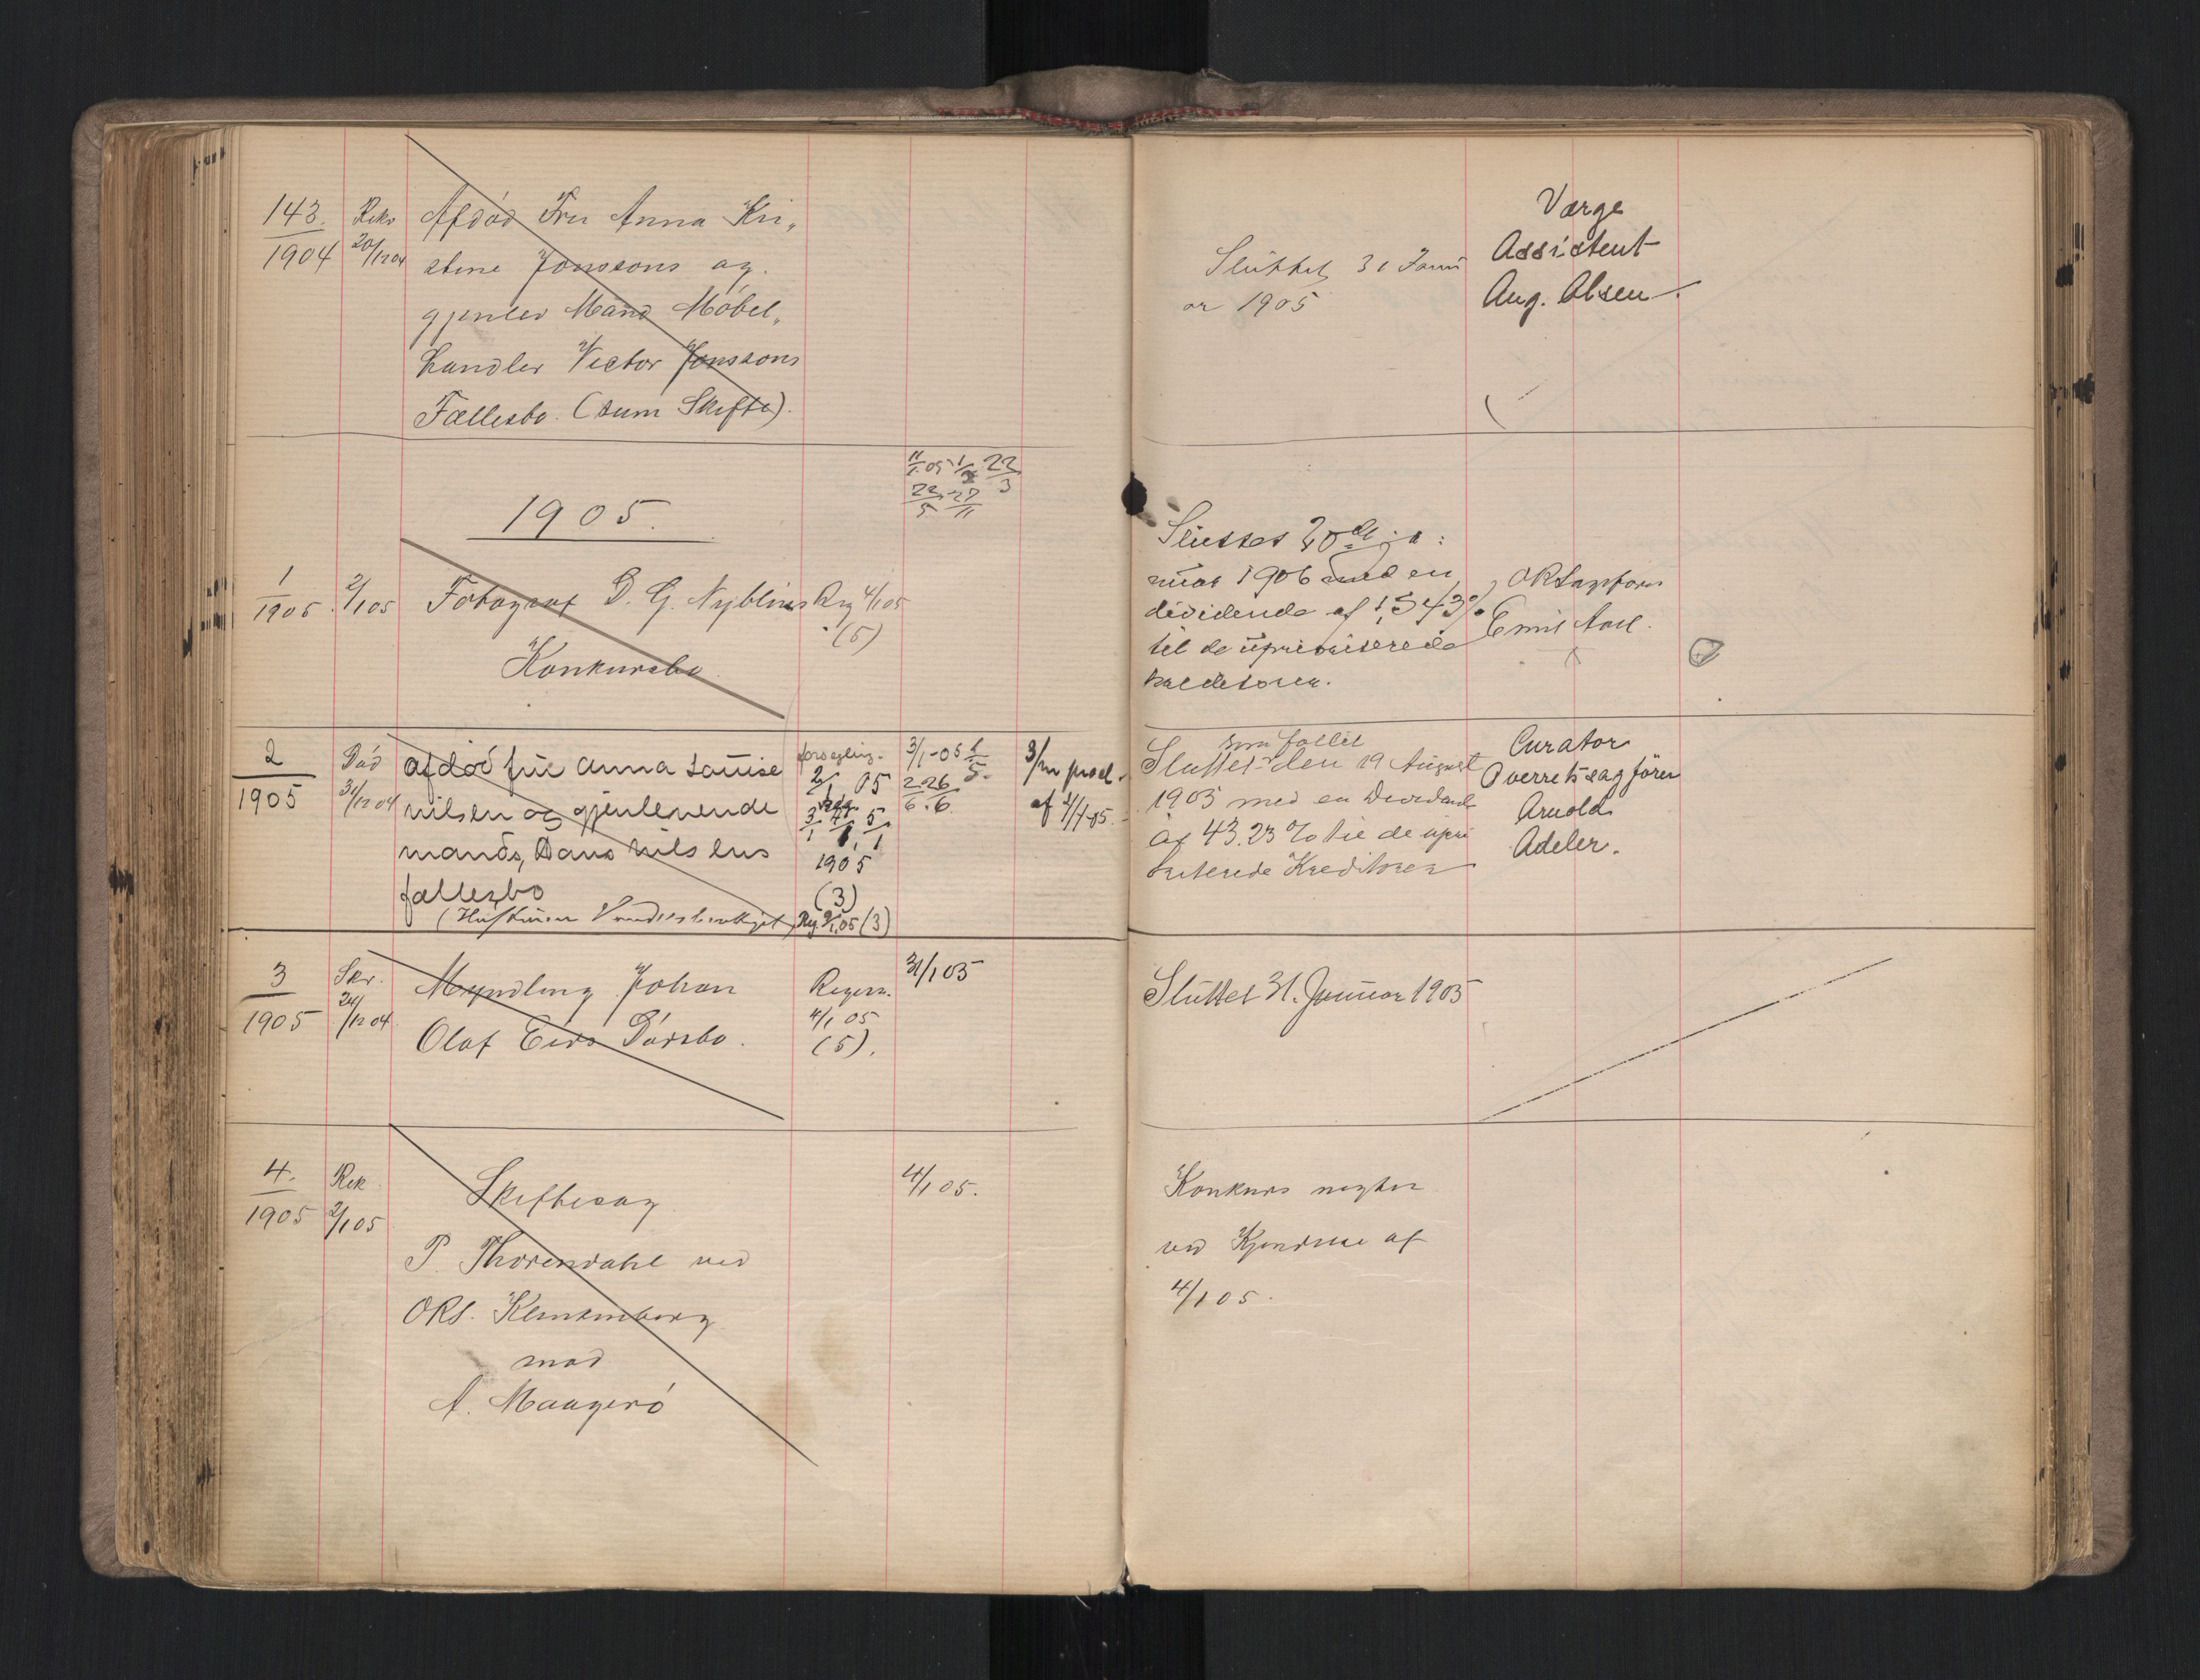 143. Rekv Afdöd Fru Anna Kri„
1904 20/12 04 stine Jonssons og
gjenlev Mand Möbel„
handler Victor Jonssons
Fællesbo. (sum Skifte).
Sluttet 31 Janu
ar 1905
Værge
Assistent
Aug. Olsen.
1905.
11/1 05
22/3
22/5 27/11
1 2/1 05 Fotograf D. G. Nyblins Reg 4/1 05
1905 (5)
Konkursbo
Sluttes 20de ja:
nuar 1906 med en
dividende af 1,543%
til de upriviterede
kreditorer.
ORSagförer
Emil
2 Död afdöd frue anna Louise
1905 31/12 04 nilsen og gjenlevende
mands, Hans nilsens
fællesbo
forsegling.
2/1 05
3/1 4/1 5/1
1905
(3)
Reg. 9/1 05 (3)
3/1-05
6. 6.
af 4/1-05.
Sluttet den 19 August
1905 med en Dividende
af 43.23% til de upri
oriterede Kreditorer
Curator
Overretssagförer
Arnold
Adeler.
3 Skr. Myndling Johan Regism. 31/1 05
1905 24/12 04 Olaf Dörsbo. 4/1 05
(5).
Sluttet 31. Januar 1905
4. Rek Skiftesag 4/1 05.
1905 2/1 05
P. Thorendahl ved
ORS. Klinkenberg
mod
A. Maagerö
Konkurs negtes
ved Kjendelse af
4/1 05.